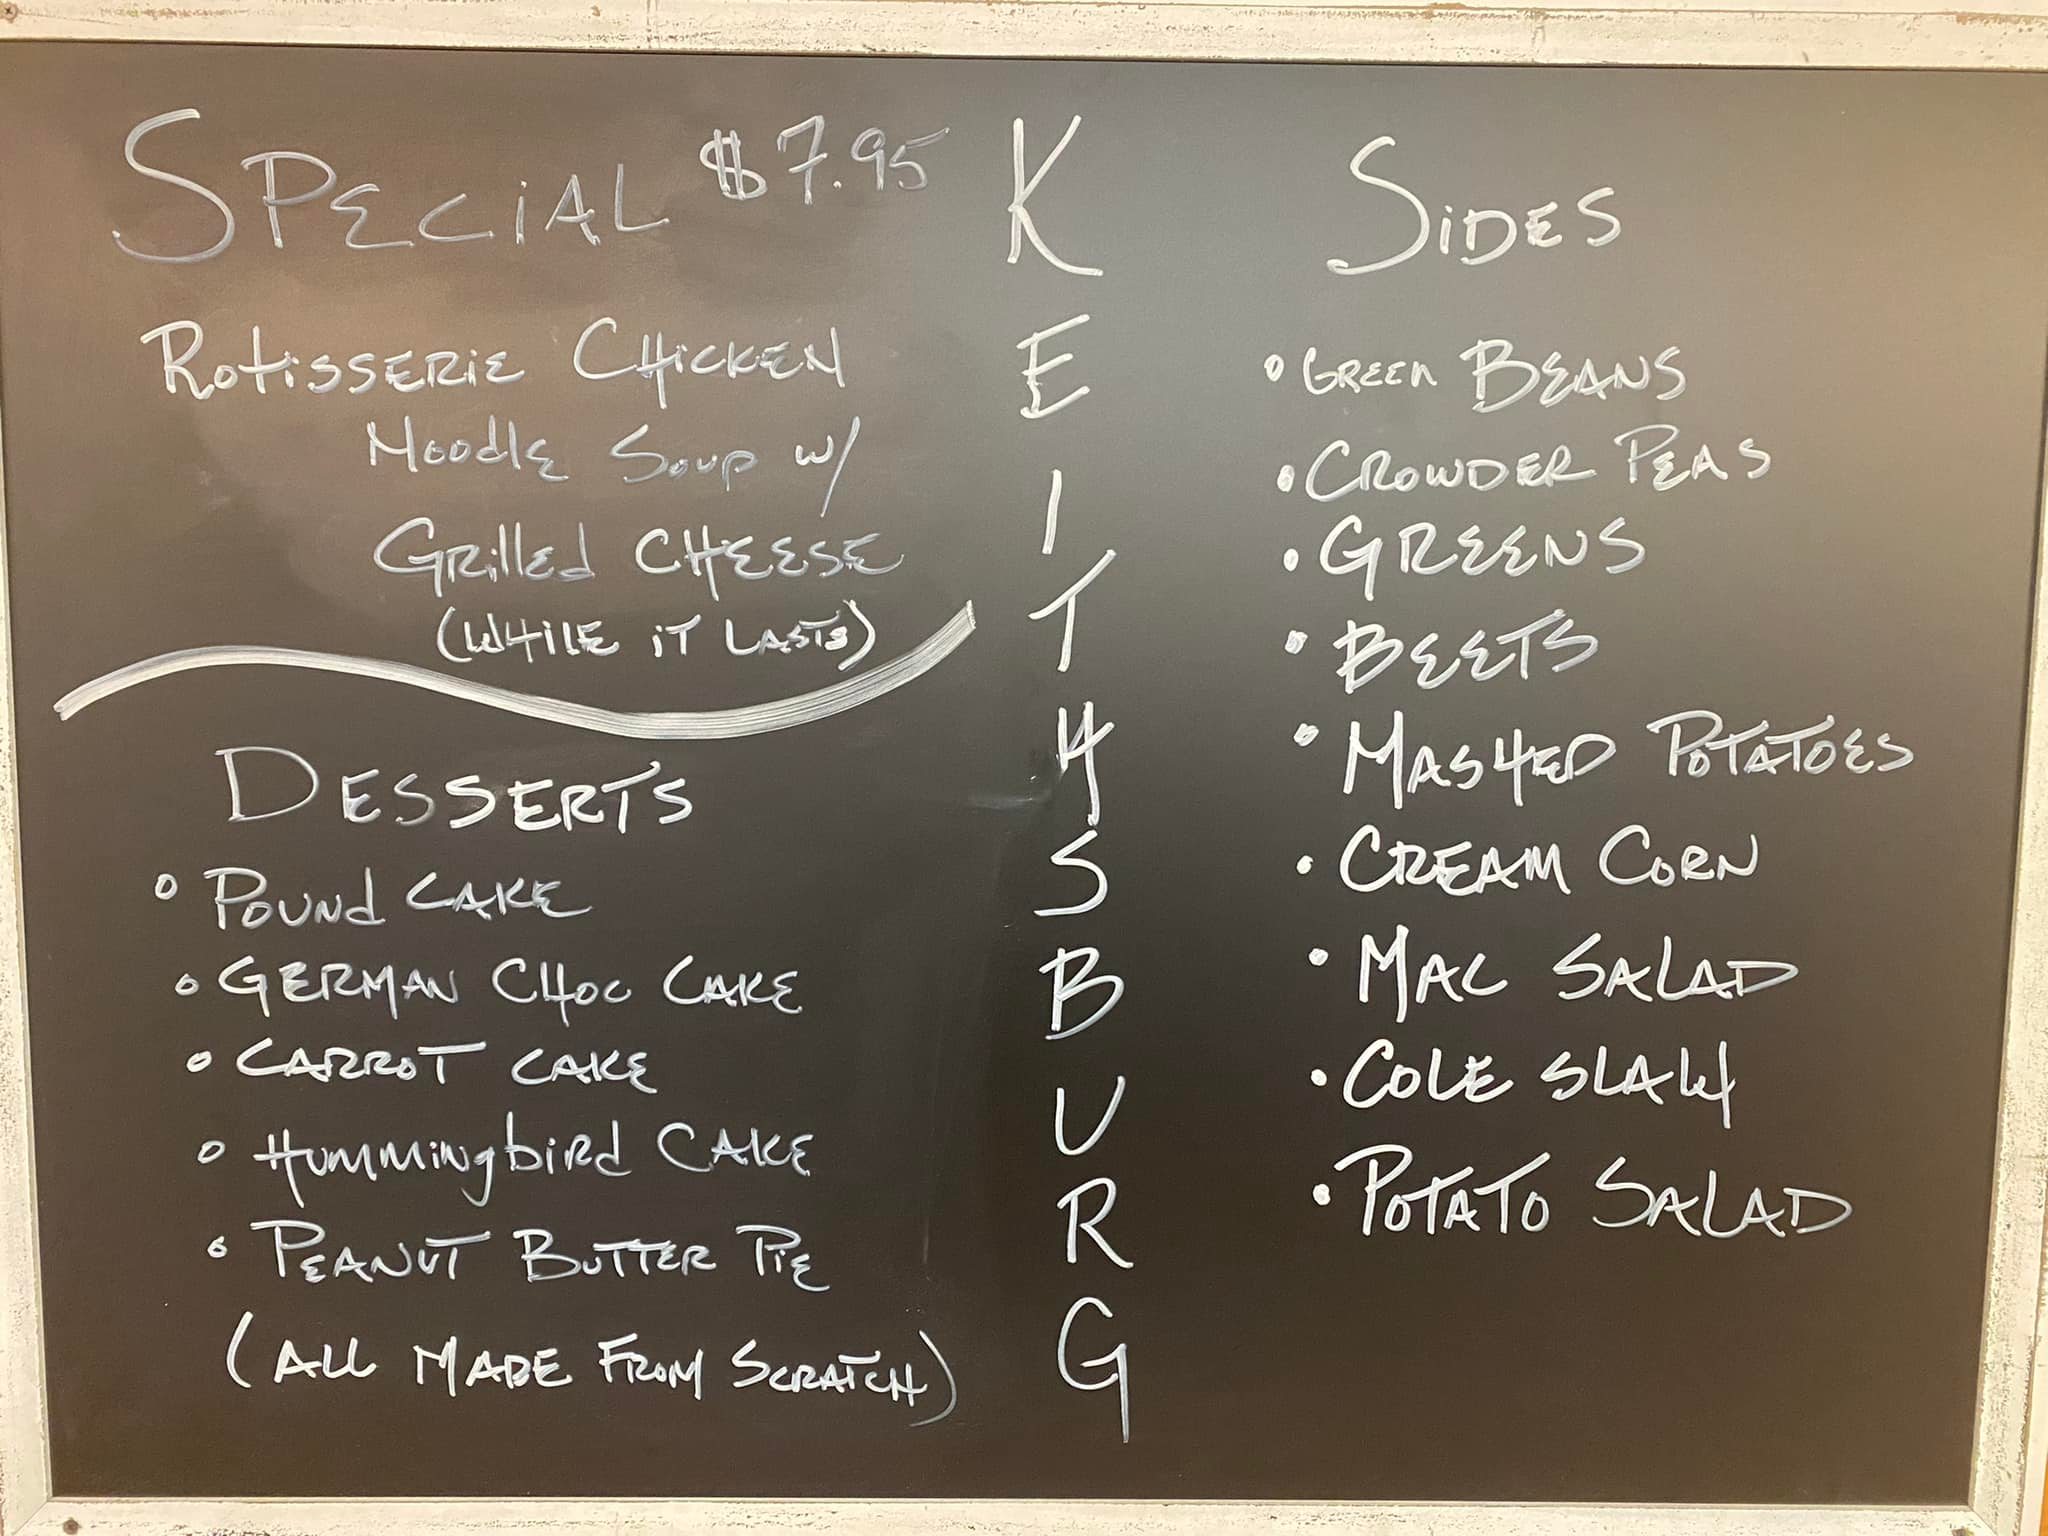 SPECIAL $7.95
ROTISSERIE CHICKEN
NOODLE SOUP W/
GRILLED CHEESE
(WHILE IT LASTS)
DESSERTS
• POUND CAKE
• GERMAN CHOC CAKE
• CARROT CAKE
• HUMMINGBIRD CAKE
• PEANUT BUTTER PIE
(ALL MADE FROM SCRATCH)
K
E
I
T
H
S
B
U
R
G
SIDES
• GREEN BEANS
• CROWDER PEAS
• GREENS
• BEETS
• MASHED POTATOES
• CREAM CORN
• MAC SALAD
• COLE SLAW
• POTATO SALAD